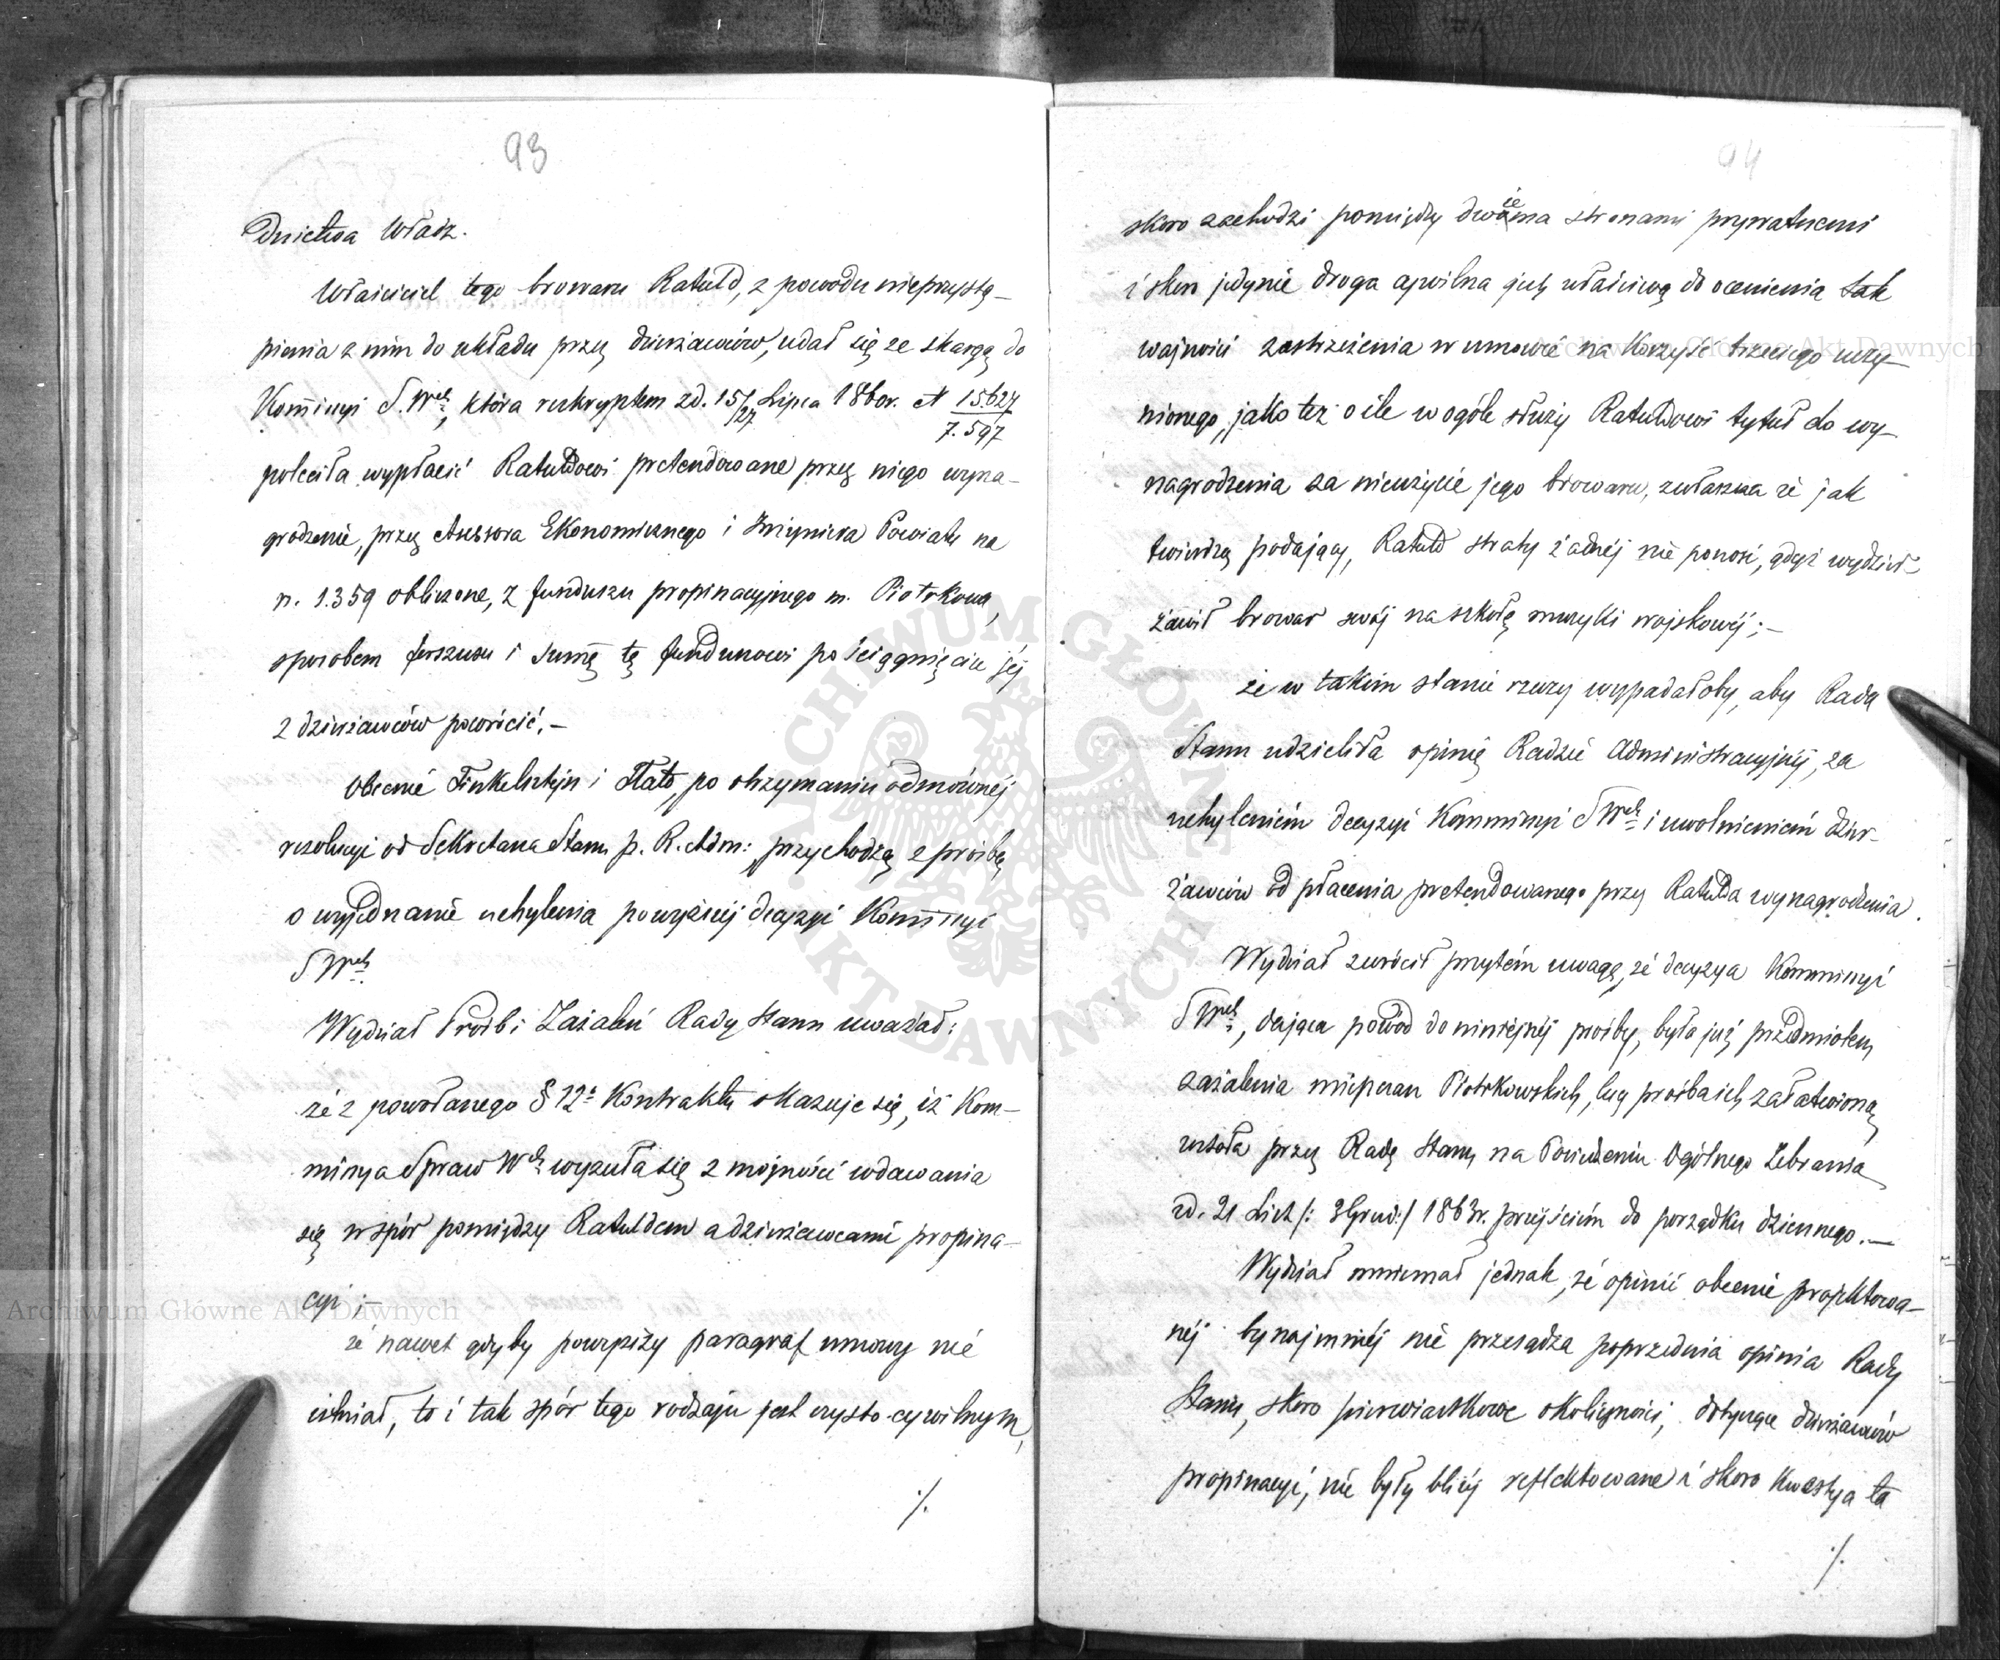 93
dnictwa Władz.
Właściciel tego browaru Ratuld, z powodu nieprzystą-
pienia z nim do układu przez dzierżawców, udał się ze skargą do
Kommissyi S. Wch, która reskryptem z d. 15/27 Lipca 1860 r. N 15.627/7.597
poleciła wypłacić Ratuldowi pretendowane przez niego wyna-
grodzenie, przez Assessora Ekonomicznego i Inżyniera Powiatu na
r. 1.359 obliczone, z funduszu propinacyjnego m. Piotrkowa,
sposobem forszusu i summę tę funduszowi po ściągnięciu jéj
z dzierżawców powrócić. –
Obecnie Finkelsztejn i Flato, po otrzymaniu odmównéj
rezolucyi od Sekretarza Stanu p. R. Adm: przychodzą z prośbą
o wyjednanie uchylenia powyższéj decyzyi Kommissyi
S Wch.
Wydział Prośb i Zażaleń Rady Stanu uważał:
że z powołanego § 12º Kontraktu okazuje się, iż Kom-
missya Spraw Wch wyzuła się z możności wdawania
się w spór pomiędzy Ratuldem a dzierżawcami propina-
cyi ; –
że nawet gdyby powyższy paragraf umowy nie
istniał, to i tak spór tego rodzaju jest czysto-cywilnym,
./.
94
skoro zachodzi pomiędzy dwiema stronami prywatnemi
i skoro jedynie droga cywilna jest właściwą do ocenienia tak
ważności zastrzeżenia w umowie na korzyść trzeciego uczy-
nionego, jako też o ile w ogóle służy Ratuldowi tytuł do wy-
nagrodzenia za nieużycie jego browaru, zwłaszcza że jak
twierdzą podający, Ratuld straty żadnéj nie ponosi, gdyż wydzier-
żawił browar swój na szkołę muzyki wojskowéj; –
że w takim stanie rzeczy wypadałoby, aby Rada
Stanu udzieliła opinię Radzie Administracyjnéj, za
uchyleniem decyzyi Kommissyi S Wch i uwolnieniem dzier-
żawców od płacenia pretendowanego przez Ratulda wynagrodzenia.
Wydział zwrócił przytém uwagę, że decyzya Kommissyi
S Wch, dająca powód do niniejszéj prośby, była już przedmiotem
zażalenia mieszczan Piotrkowskich, lecz prośba ich załatwioną
została przez Radę Stanu na Posiedzeniu Ogólnego Zebrania
z d. 21 List /: 3 Grud :/ 1863 r. przejściem do porządku dziennego. –
Wydział mniemał jednak, że opinii obecnie projektowa-
néj bynajmniéj nie przesądza poprzednia opinia Rady
Stanu, skoro pierwiastkowe okoliczności, dotyczące dzierżawców
propinacyi, nie były bliżéj reflektowane i skoro kwestya ta
./.
Archiwum Główne Akt Dawnych
Archiwum Główne Akt Dawnych
ARCHIWUM GŁÓWNE AKT DAWNYCH